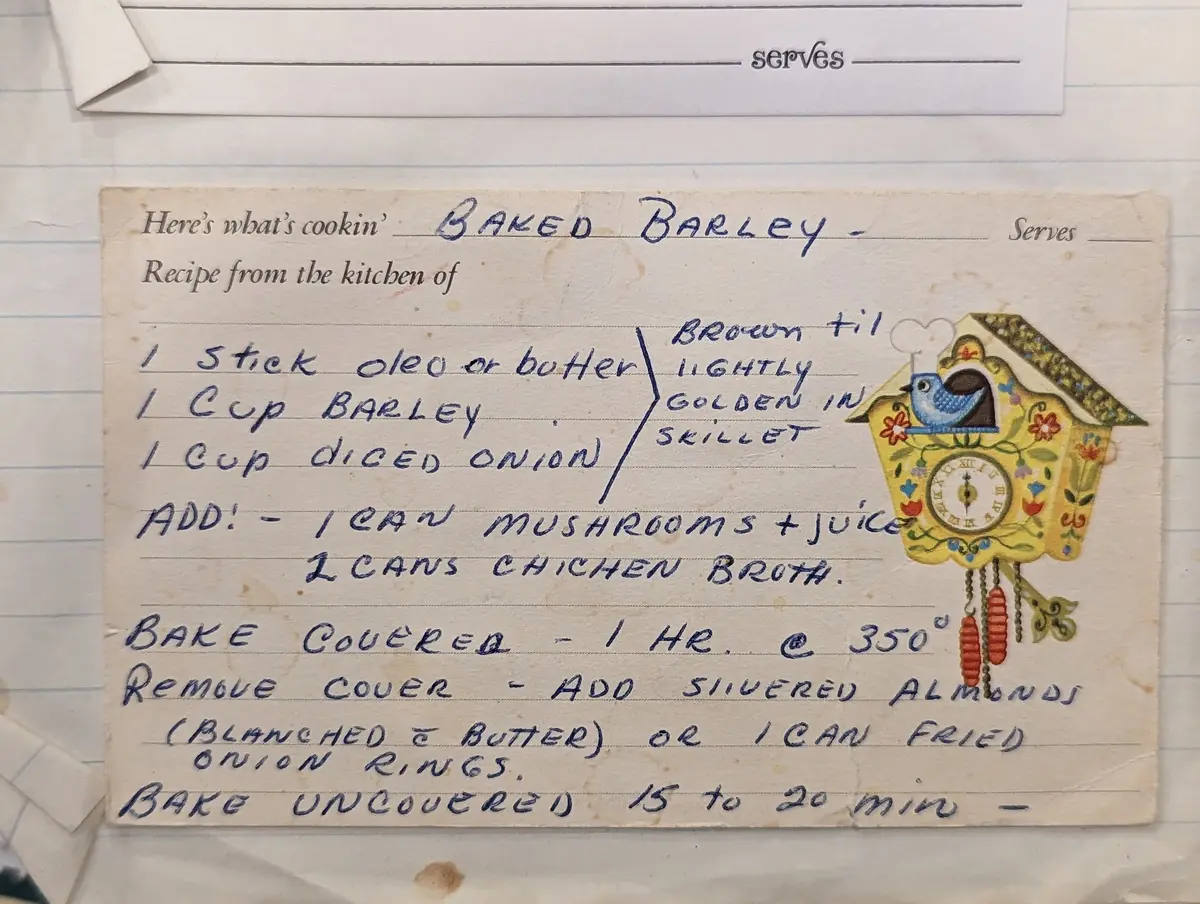 serves
Here's what's cookin' BAKED BARLEY - Serves
Recipe from the kitchen of
1 Stick oleo or butter
1 Cup BARLEY
1 Cup diCED ONION
BROwn til
LIGHTLY
GOLDEN IN
SKILLET
ADD! - 1 CAN MUSHROOMS + juice
2 CANS CHICHEN BROTH.
BAKE COVERED - 1 HR. @ 350°
REMOVE COVER - ADD SLIVERED ALMONDS
(BLANCHED c̄ BUTTER) OR 1 CAN FRIED
ONION RINGS.
BAKE UNCOVERED 15 to 20 min -